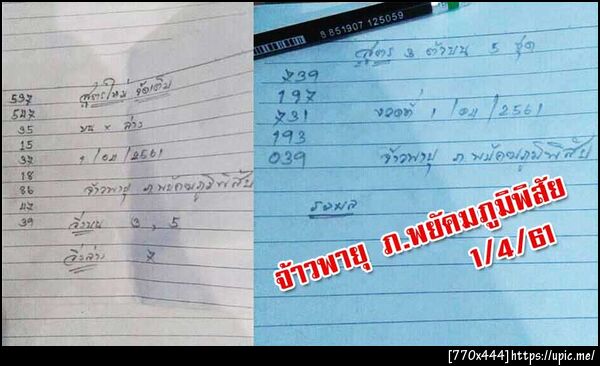 สูตรใหม่ จัดเต็ม
597
547
35 บน × ล่าง
15
37 1/04/2561
18
86 จ้าวพายุ ภ.พยัคฆภูมิพิสัย
47
39 วิ่งบน 3, 5
วิ่งล่าง 7
8 851907 125059
สูตร 3 ตัวบน 5 ชุด
739
197
731 งวดที่ 1/04/2561
193
039 จ้าวพายุ ภ.พยัคฆภูมิพิสัย
รอผล
จ้าวพายุ ภ.พยัคฆภูมิพิสัย
1/4/61
[770x444]https://upic.me/